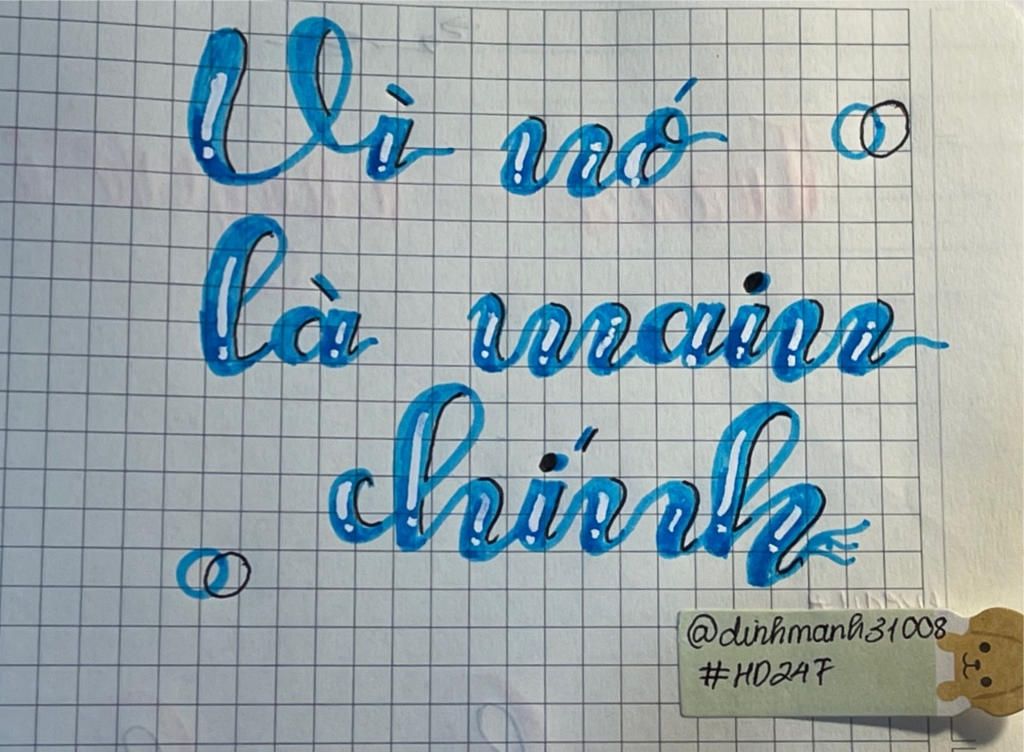 Vì nó
là main
chính
@dinhmanh31008
#HD247